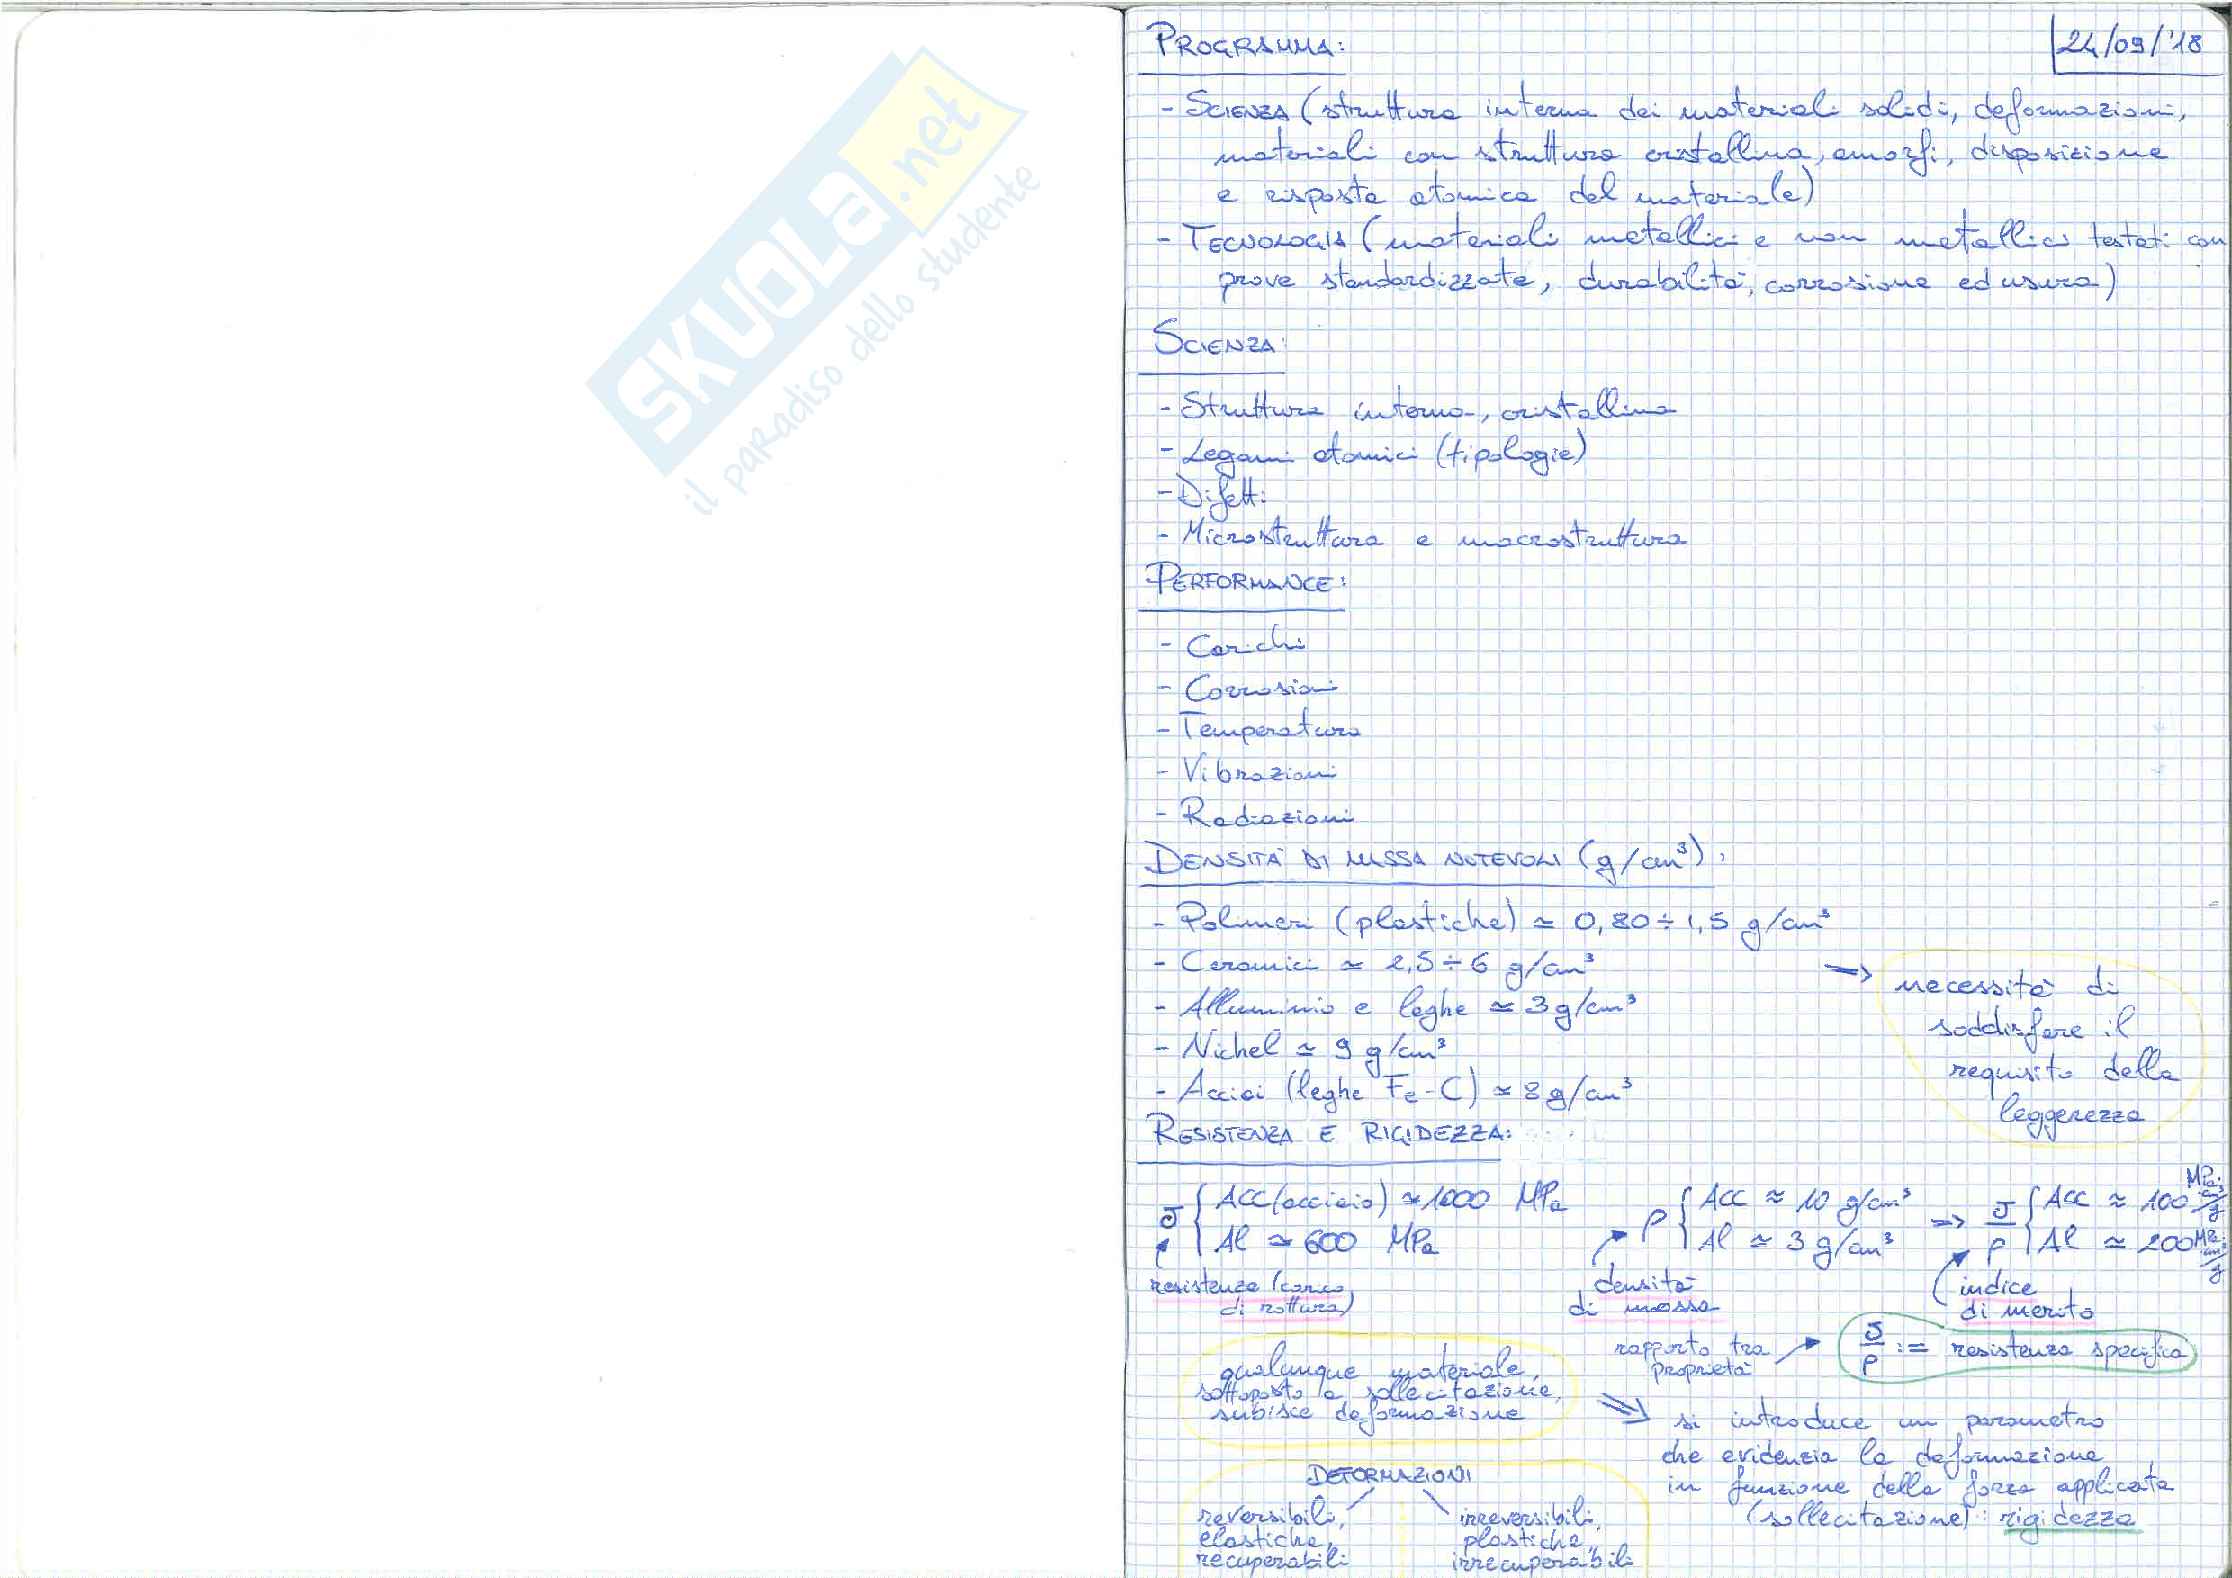 SKUOLA.net
il paradiso dello studente
PROGRAMMA:
24/09/'18
- SCIENZA (struttura interna dei materiali solidi, deformazioni,
materiali con struttura cristallina, amorfi, disposizione
e risposta atomica del materiale)
- TECNOLOGIA (materiali metallici e non metallici testati con
prove standardizzate, durabilità, corrosione ed usura)
SCIENZA:
- Struttura interna, cristallina
- Legami atomici (tipologie)
- Difetti
- Microstruttura e macrostruttura
PERFORMANCE:
- Carichi
- Corrosioni
- Temperatura
- Vibrazioni
- Radiazioni
DENSITÀ DI MASSA NOTEVOLI (g/cm³):
- Polimeri (plastiche) ≃ 0,80÷1,5 g/cm³
- Ceramici ≃ 2,5÷6 g/cm³
- Alluminio e leghe ≃ 3 g/cm³
- Nichel ≃ 9 g/cm³
- Acciai (leghe Fe-C) ≃ 8 g/cm³
→ necessità di
soddisfare il
requisito della
leggerezza
RESISTENZA E RIGIDEZZA:
σ { ACC (acciaio) ≃ 1000 MPa
Al ≃ 600 MPa
resistenza (carico
di rottura)
ρ { ACC ≈ 10 g/cm³
Al ≃ 3 g/cm³
densità
di massa
=> σ/ρ { ACC ≈ 100 MPa·cm³/g
Al ≃ 200 MPa·cm³/g
indice
di merito
rapporto tra
proprietà
σ/ρ := resistenza specifica
qualunque materiale,
sottoposto a sollecitazione,
subisce deformazione
=> si introduce un parametro
che evidenzia la deformazione
in funzione della forza applicata
(sollecitazione): rigidezza
DEFORMAZIONI
reversibili,
elastiche,
recuperabili
irreversibili,
plastiche,
irrecuperabili